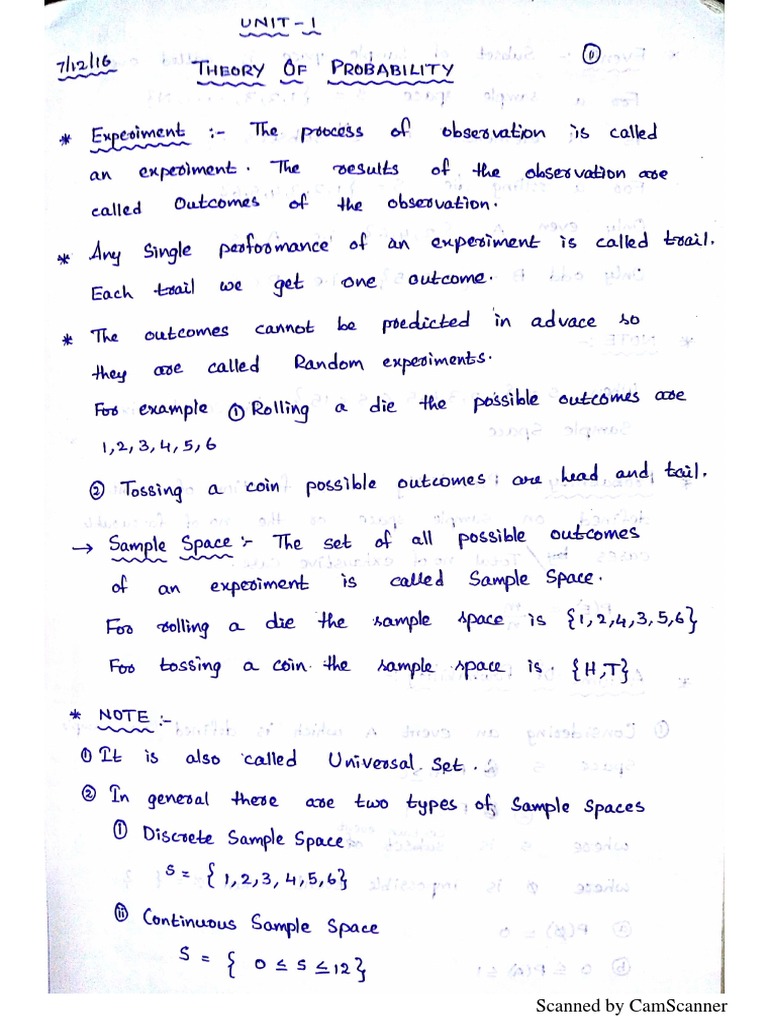 UNIT-1
7/12/16 THEORY OF PROBABILITY ①
* Experiment :- The process of observation is called
an experiment. The results of the observation are
called Outcomes of the observation.
* Any Single performance of an experiment is called trail.
Each trail we get one outcome.
* The outcomes cannot be predicted in advace so
they are called Random experiments.
For example ① Rolling a die the possible outcomes are
1,2,3,4,5,6
② Tossing a coin possible outcomes: are head and tail.
→ Sample Space :- The set of all possible outcomes
of an experiment is called Sample Space.
For rolling a die the sample space is {1,2,4,3,5,6}
For tossing a coin the sample space is. {H,T}
* NOTE :-
① It is also called Universal Set.
② In general there are two types of Sample Spaces
① Discrete Sample Space
S = {1,2,3, 4,5,6}
ⓘⓘ Continuous Sample Space
S = { 0 ≤ s ≤ 12}
Scanned by CamScanner